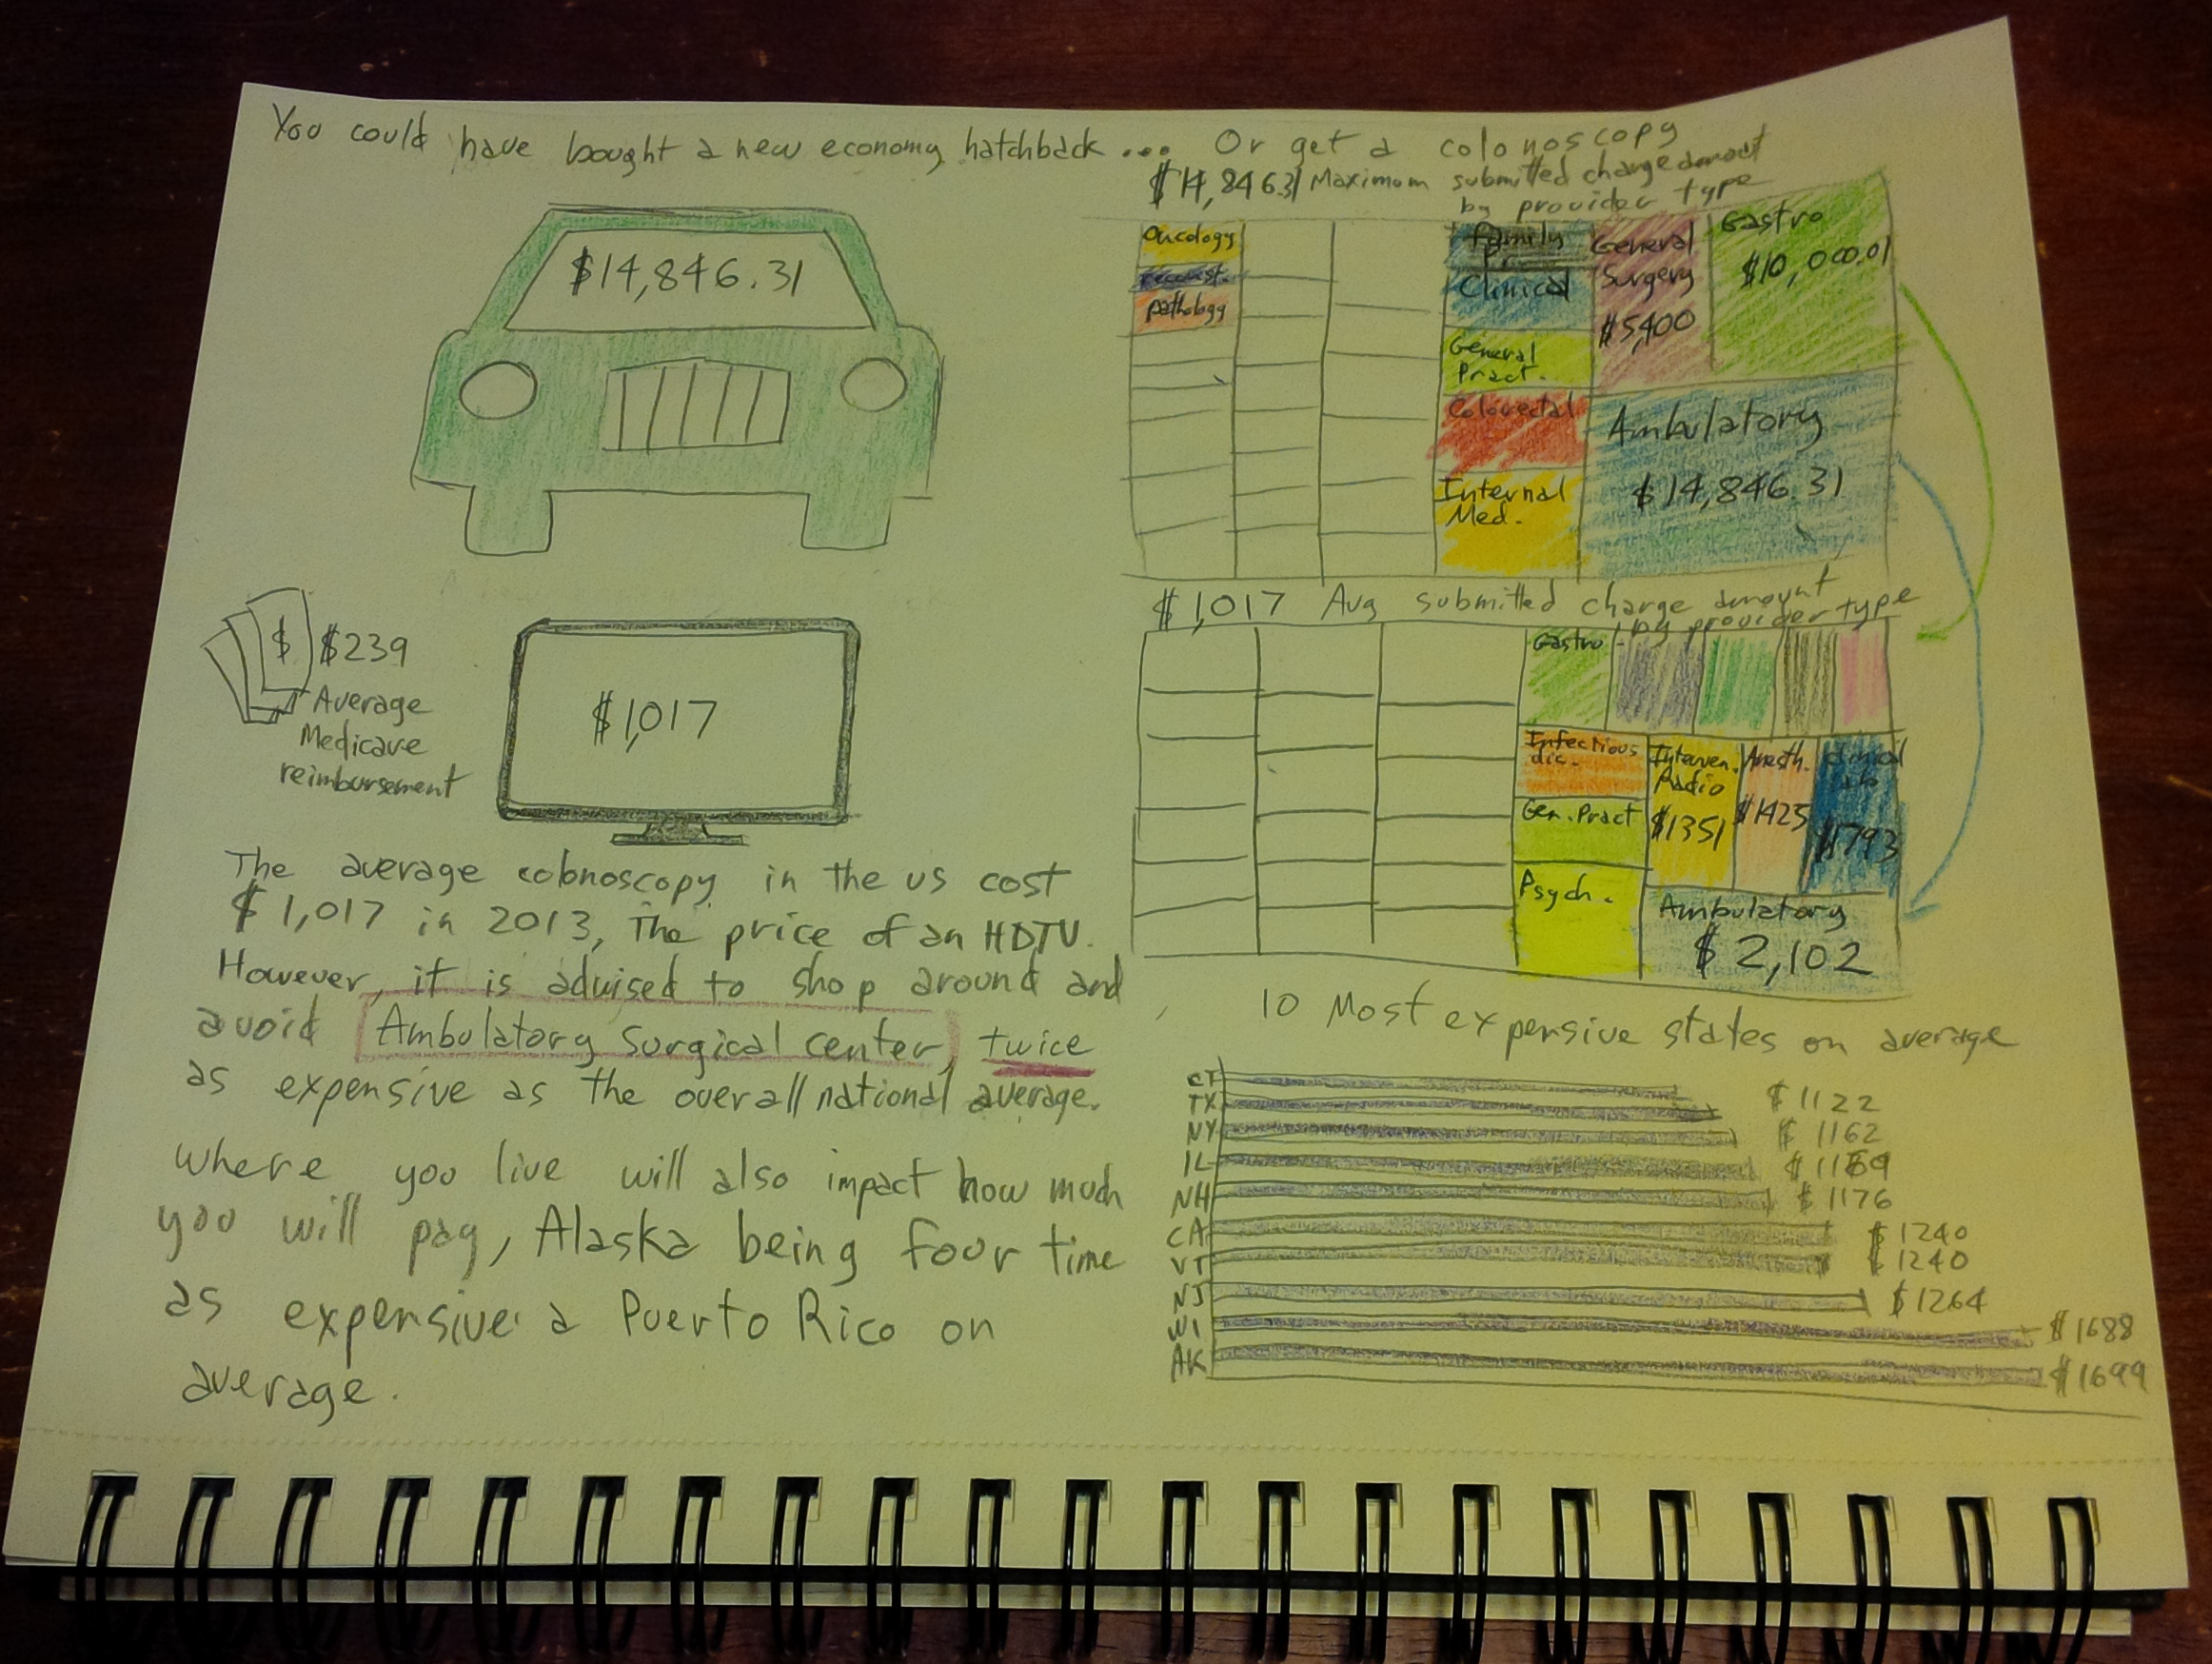 You could have bought a new economy hatchback ... Or get a colonoscopy
$14,846.31 Maximum submitted charge amount
by provider type
$14,846.31
Oncology
Pathology
Family
Clinical
General
Pract.
Colorectal
Internal
Med.
General
Surgery
$5,400
Gastro
$10,000.01
Ambulatory
$14,846.31
$ $239
Average
Medicare
reimbursement
$1,017
$1,017 Avg submitted charge amount
by provider type
Gastro
Infectious
dic.
Gen. Pract
Psych.
Interven.
Radio
$1351
Anesth.
$1425
Clinical
Lab
$1793
Ambulatory
$2,102
The average colonoscopy in the US cost
$1,017 in 2013, The price of an HDTV.
However, it is advised to shop around and
avoid Ambulatory surgical center, twice
as expensive as the overall national average.
where you live will also impact how much
you will pay, Alaska being four time
as expensive a Puerto Rico on
average.
10 Most expensive states on average
CT $1122
TX $1162
NY $1169
IL $1176
NH $1240
CA $1240
VT $1264
NJ
WI $1688
AK $1699